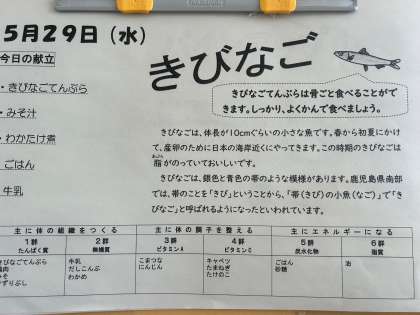 5月29日(水)
今日の献立
・きびなごてんぷら
・みそ汁
・わかたけ煮
・ごはん
・牛乳
きびなご
きびなごてんぷらは骨ごと食べることがで
きます。しっかり、よくかんで食べましょう。
きびなごは、体長が10cmぐらいの小さな魚です。春から初夏にかけ
て、産卵のために日本の海岸近くにやってきます。この時期のきびなごは
脂がのっていておいしいです。
きびなごは、銀色と青色の帯のような模様があります。鹿児島県南部
では、帯のことを「きび」ということから、「帯(きび)の小魚(なご)」で「き
びなご」と呼ばれるようになったといわれています。
主に体の組織をつくる 主に体の調子を整える 主にエネルギーになる
1群 2群 3群 4群 5群 6群
たんぱく質 無機質 ビタミンA ビタミンC 炭水化物 脂質
きびなごてんぷら 牛乳 こまつな キャベツ ごはん 油
鶏肉 だしこんぶ にんじん たまねぎ 砂糖
みそ わかめ たけのこ
けずりぶし